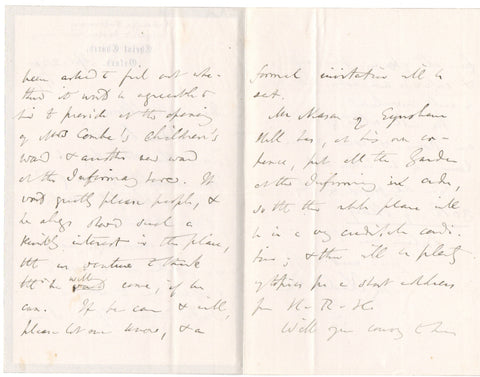 been asked to find out whe-
ther it would be agreeable to
him to preside at the opening
of Mrs Combe's Children's
ward & another new ward
at the Infirmary here. It
would greatly please people, &
he always showed such a
kindly interest in the place,
tht we venture to think
tht he will come, if he
can. If he can & will,
please let me know, & a
formal invitation will be
sent.
Mr Mason of Eynsham
Hall has, at his own ex-
pence, put all the Garden
at the Infirmary in order,
so tht the whole place will
be in a very creditable condi-
tion; & there will be plenty
of topics for a short address
from H-R-H-
Will you convey to him